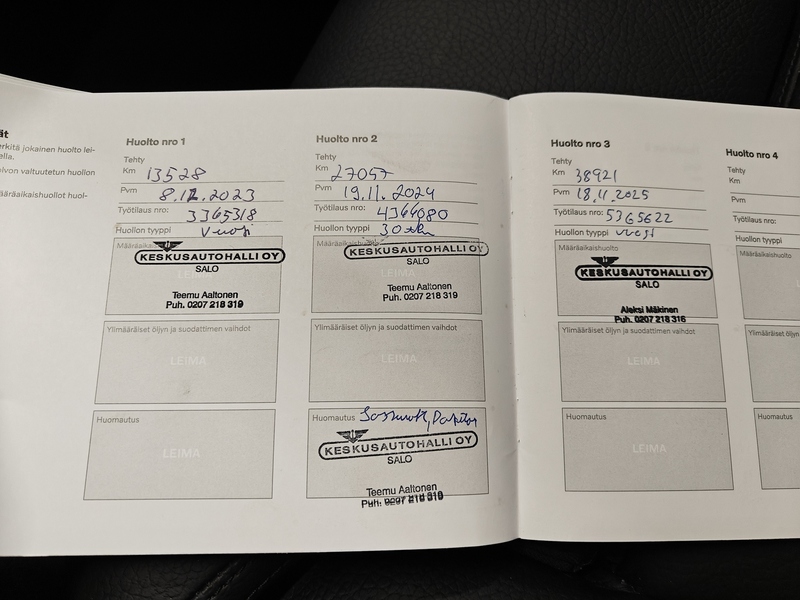 ät
erkitä jokainen huolto lei-
ella.
elvon valtuutetun huollon
ääräaikaishuollot huol-
Huolto nro 1
Tehty
Km 13528
Pvm 8.12.2023
Työtilaus nro: 3365318
Huollon tyyppi Vuosi
Määräai
KESKUSAUTOHALLI OY
SALO
LEIMA
Teemu Aaltonen
Puh. 0207 218 319
Ylimääräiset öljyn ja suodattimen vaihdot
LEIMA
Huomautus
LEIMA
Huolto nro 2
Tehty
Km 27057
Pvm 19.11.2024
Työtilaus nro: 4364080
Huollon tyyppi
Määräaikaishuolto
KESKUSAUTOHALLI OY
SALO
LEIMA
Teemu Aaltonen
Puh. 0207 218 319
Ylimääräiset öljyn ja suodattimen vaihdot
LEIMA
Huomautus
KESKUSAUTOHALLI OY
SALO
Teemu Aaltonen
Puh. 0207 218 319
Huolto nro 3
Tehty
Km 38921
Pvm 18.11.2025
Työtilaus nro: 5365622
Huollon tyyppi vuosi
Määräaikaishuolto
KESKUSAUTOHALLI OY
SALO
Aleksi Mäkinen
Puh. 0207 218 316
Ylimääräiset öljyn ja suodattimen vaihdot
LEIMA
Huomautus
LEIMA
Huolto nro 4
Tehty
Km
Pvm
Työtilaus nro:
Huollon tyyppi
Määräaikaishuolto
Ylimääräiset öljyn
Huomautus